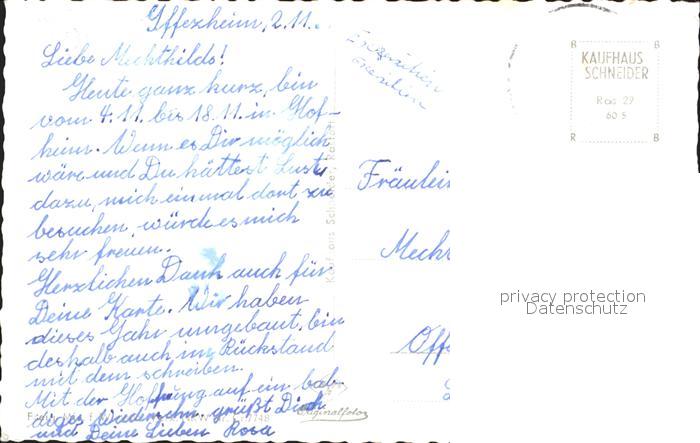 Iffezheim, 2.11.
Liebe Mechthilds!
Heute ganz kurz, bin
vom 4.11. bis 18.11. in Hof-
heim. Wenn es Dir möglich
wäre und Du hättest Lust
dazu, mich einmal dort zu
besuchen, würde es mich
sehr freuen.
Herzlichen Dank auch für
Deine Karte. Wir haben
dieses Jahr umgebaut, bin
deshalb auch im Rückstand
mit dem schreiben.
Mit der Hoffnung auf ein bal-
diges Wiedersehn, grüßt Dich
und Deine Lieben Rosa
Kaufhaus Schneider, Rastatt
Originalfoto
Fräulein
Mech
Off
B B
KAUFHAUS
SCHNEIDER
Ras 27
60 S
R B
privacy protection
Datenschutz